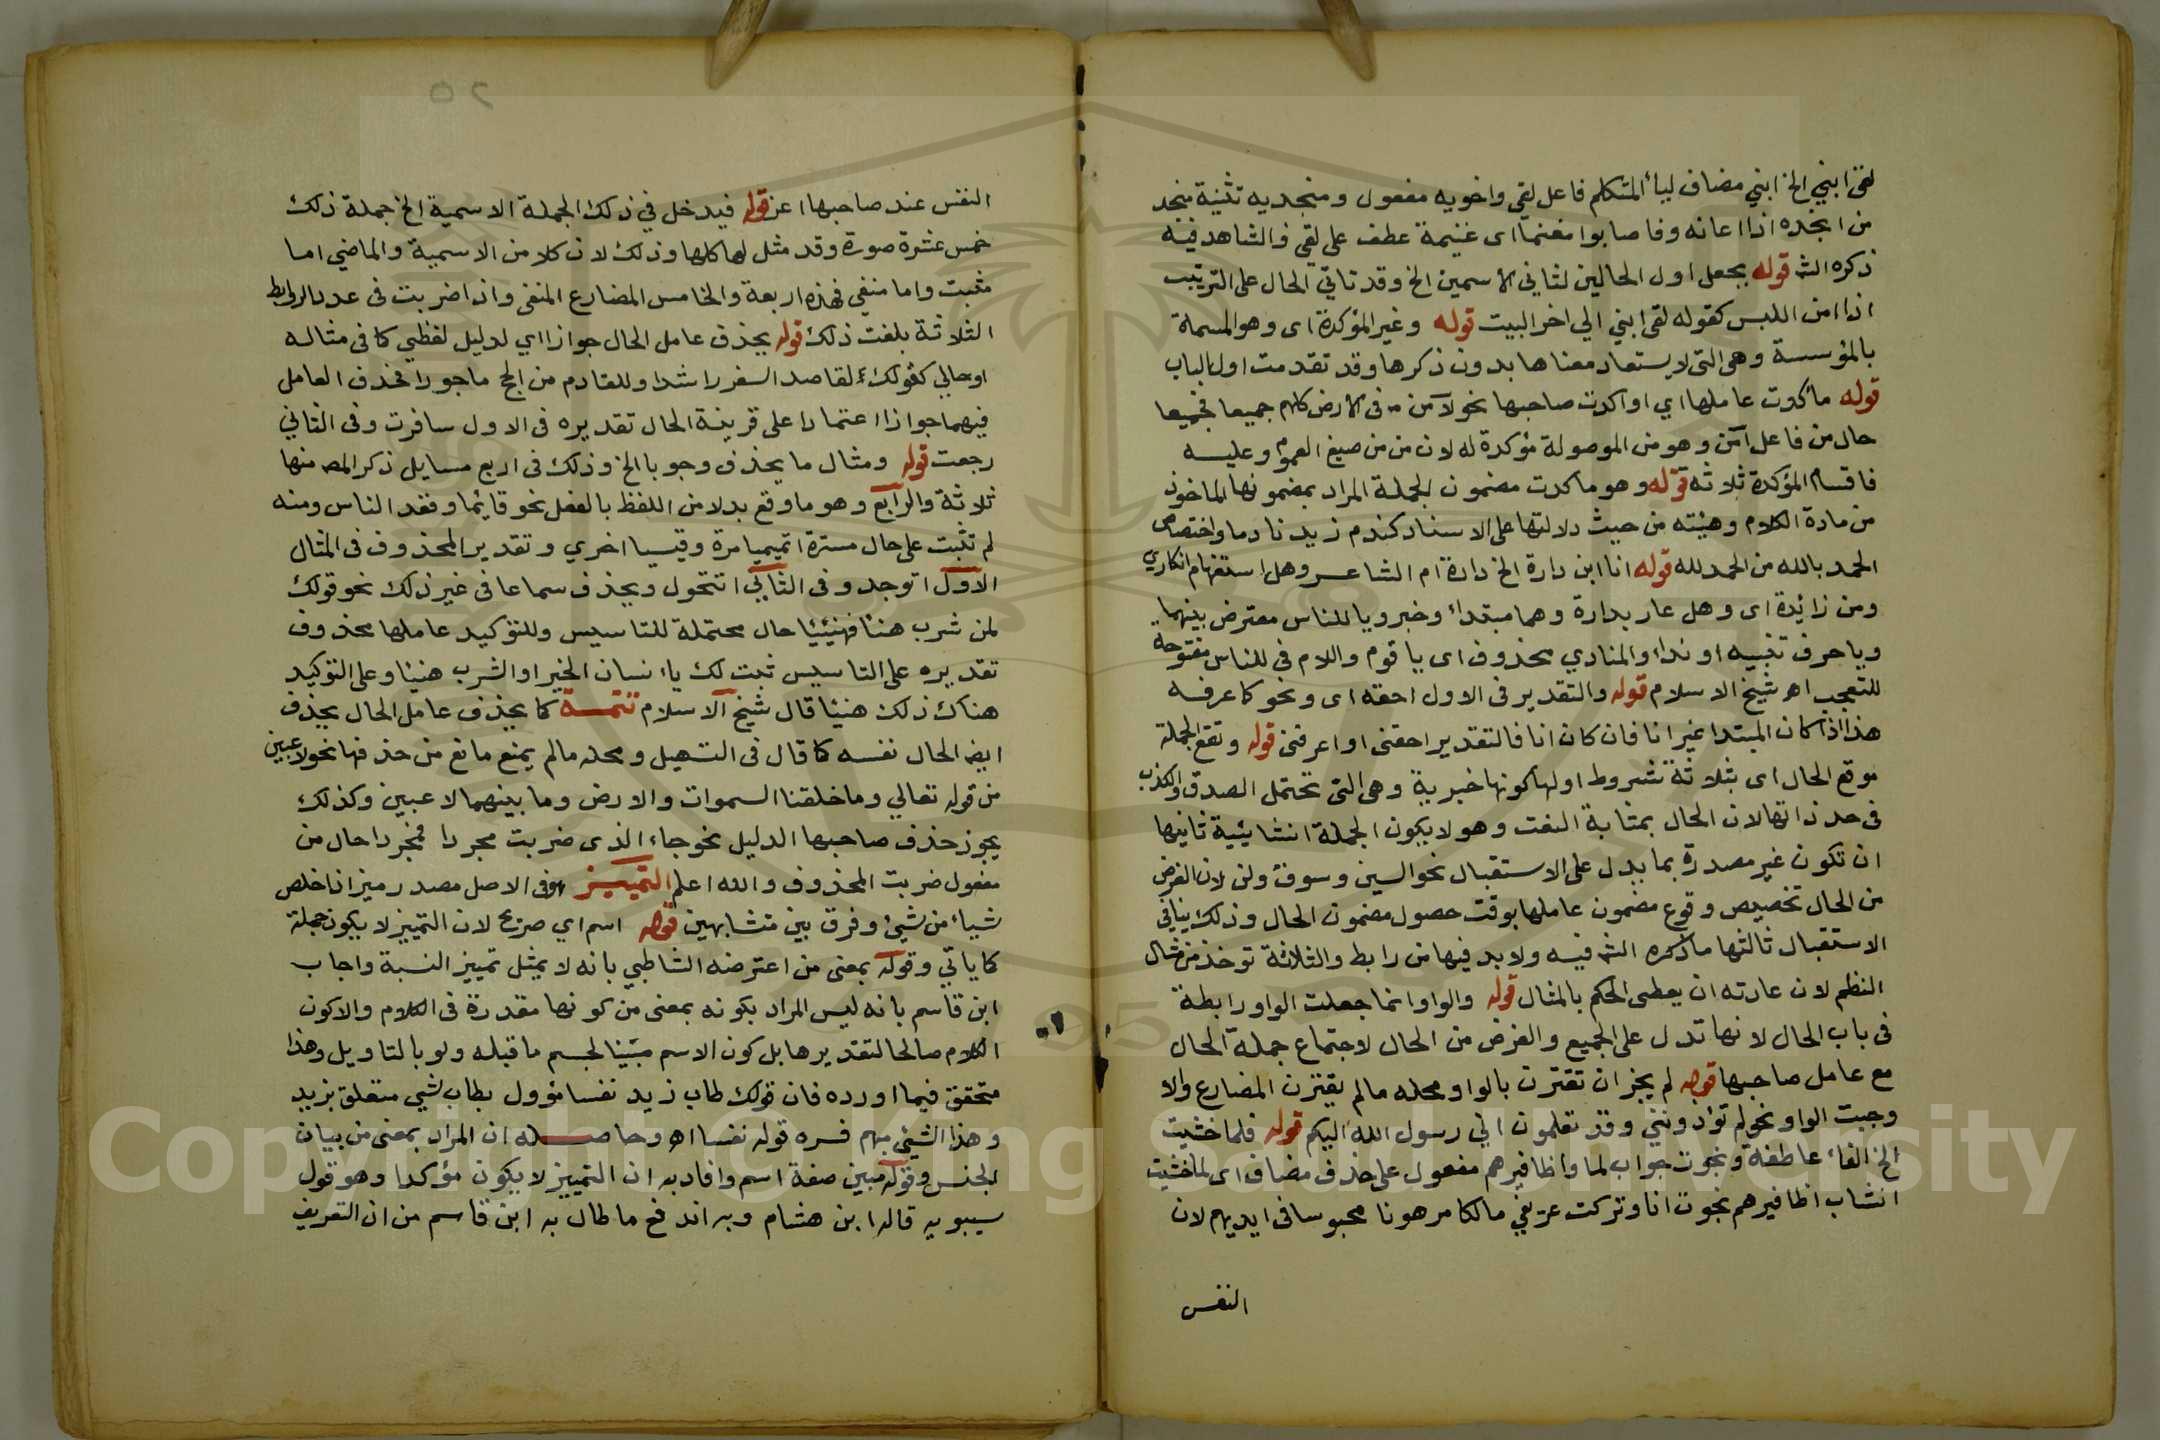 لقى ابني الخ ابني مضاف لياء المتكلم فاعل لقي واخويه مفعول ومنجديه تثنية منجد
من انجده اذا اعانه وفاصابوا مغنما اى غنيمة عطف على لقي والشاهد فيه
ذكره الش قوله يجعل اول الحالين لثاني الاسمين الخ وقد تاتي الحال على الترتيب
اذا امن اللبس كقوله لقى ابني الي اخر البيت قوله وغير المؤكدة اى وهو المسماة
بالمؤسسة وهى التى لا يستفاد معناها بدون ذكرها وقد تقدمت اول الباب
قوله ما كدت عاملها اي او اكدت صاحبها نحو لآمن من فى الارض كلهم جميعا فجميعا
حال من فاعل آمن وهو من الموصولة مؤكدة له لان من من صيغ العموم وعليه
فاقسام المؤكدة ثلاثه قوله وهو ما كدت مضمون الجملة المراد بمضمونها الماخوذ
من مادة الكلام وهيئته من حيث دلالتها على الاسناد كندم زيد نادما واختصاص
الحمد بالله من الحمد لله قوله انا ابن دارة الخ دارة ام الشاعر وهل استفهام انكاري
ومن زائدة اى وهل عار بدارة وهما مبتداء وخبر ويا للناس معترض بينهما
ويا حرف تنبيه او نداء والمنادي محذوف اى يا قوم واللام فى للناس مفتوحة
للتعجب اه شيخ الاسلام قوله والتقدير فى الاول احقه اى ونحو كاعرفه
هذا اذا كان المبتدا غير انا فان كان انا فالتقدير احقنى او اعرفنى قوله وتقع الجملة
موقع الحال اى بثلاثة شروط اولها كونها خبرية وهى التى تحتمل الصدق والكذب
فى حد ذاتها لان الحال بمثابة النعت وهو لا يكون الجملة انشائية ثانيها
ان تكون غير مصدرة بما يدل على الاستقبال نحو السين وسوف ولن لان الغرض
من الحال تخصيص وقوع مضمون عاملها بوقت حصول مضمون الحال وذلك ينافي
الاستقبال ثالثها ما ذكره الش فيه ولا بد فيها من رابط والثلاثة توخذ من مثال
النظم لان عادته ان يعطى الحكم بالمثال قوله والواو انما جعلت الواو رابطة
فى باب الحال لانها تدل على الجميع والغرض من الحال لاجتماع جملة الحال
مع عامل صاحبها قوله لم يجز ان تقترن بالواو ومحله مالم يقترن المضارع والا
وجبت الواو نحو لم تؤذونني وقد تعلمون اني رسول الله اليكم قوله فلما خشيت
الخ الفاء عاطفة ونجوت جواب لما واظافيرهم مفعول على حذف مضاف اى لما خشيت
انشاب اظافيرهم نجوت انا وتركت عريفي مالكا مرهونا محبوسا فى ايديهم لان
النفس
النفس عند صاحبها اعز قوله فيدخل في ذلك الجملة الاسمية الخ جملة ذلك
خمس عشرة صورة وقد مثل لها كلها وذلك لان كلا من الاسمية والماضي اما
مثبت واما منفي فهذه اربعة والخامس المضارع المنفى واذا ضربت فى عدد الروابط
الثلاثة بلغت ذلك قوله يحذف عامل الحال جوازا اي لدليل لفظي كما فى مثاله
او حالي كقولك لقاصد السفر راشدا وللقادم من الحج ماجورا فحذف العامل
فيهما جوازا اعتمادا على قرينة الحال تقديره فى الاول سافرت وفى الثاني
رجعت قوله ومثال ما يحذف وجوبا الخ وذلك فى اربع مسايل ذكر المص منها
ثلاثة والرابع وهو ما وقع بدلا من اللفظ بالفعل نحو قايما وقعد الناس ومنه
لم تثبت على حال مسترة اتميميا مرة وقيسيا اخري وتقدير المحذوف فى المثال
الاول اتوجد وفى الثاني اتتحول ويحذف سماعا فى غير ذلك نحو قولك
لمن شرب هنئا فهنيئا حال محتملة للتاسيس وللتوكيد عاملها محذوف
تقديره على التاسيس ثبت لك يا انسان الخير او الشرب هنيئا وعلى التوكيد
هناك ذلك هنيئا قال شيخ الاسلام تتمة كما يحذف عامل الحال يحذف
ايض الحال نفسه كما قال فى التسهيل ومحله مالم يمنع مانع من حذفها نحو لاعبين
من قوله تعالي وما خلقنا السموات والارض وما بينهما لاعبين وكذلك
يجوز حذف صاحبها الدليل نحو جاء الذى ضربت مجردا فمجردا حال من
مفعول ضربت المحذوف والله اعلم التمييز هو فى الاصل مصدر ميز اذا خلص
شيأ من شيئ وفرق بين متشابهين قوله اسم اي صريح لان التمييز لا يكون جملة
كما ياتي وقوله بمعنى من اعترضه الشاطبي بانه لا يمثل تمييز النسبة واجاب
ابن قاسم بانه ليس المراد بكونه بمعنى من كونها مقدرة فى الكلام والا كون
الكلام صالحا لتقديرها بل كون الاسم مبينا لجسم ما قبله ولو بالتاويل وهذا
متحقق فيما اورده فان قولك طاب زيد نفسا مؤول بطاب شيئ متعلق بزيد
وهذا الشيئ مبهم فسره قوله نفسا اه وحاصله ان المراد بمعنى من بيان
الجنس وقوله مبين صفة اسم وافاد به ان التمييز لا يكون مؤكدا وهو قول
سيبويه قاله ابن هشام وبه اندفع ما طال به ابن قاسم من ان التعريف
Copyright © King Saud University